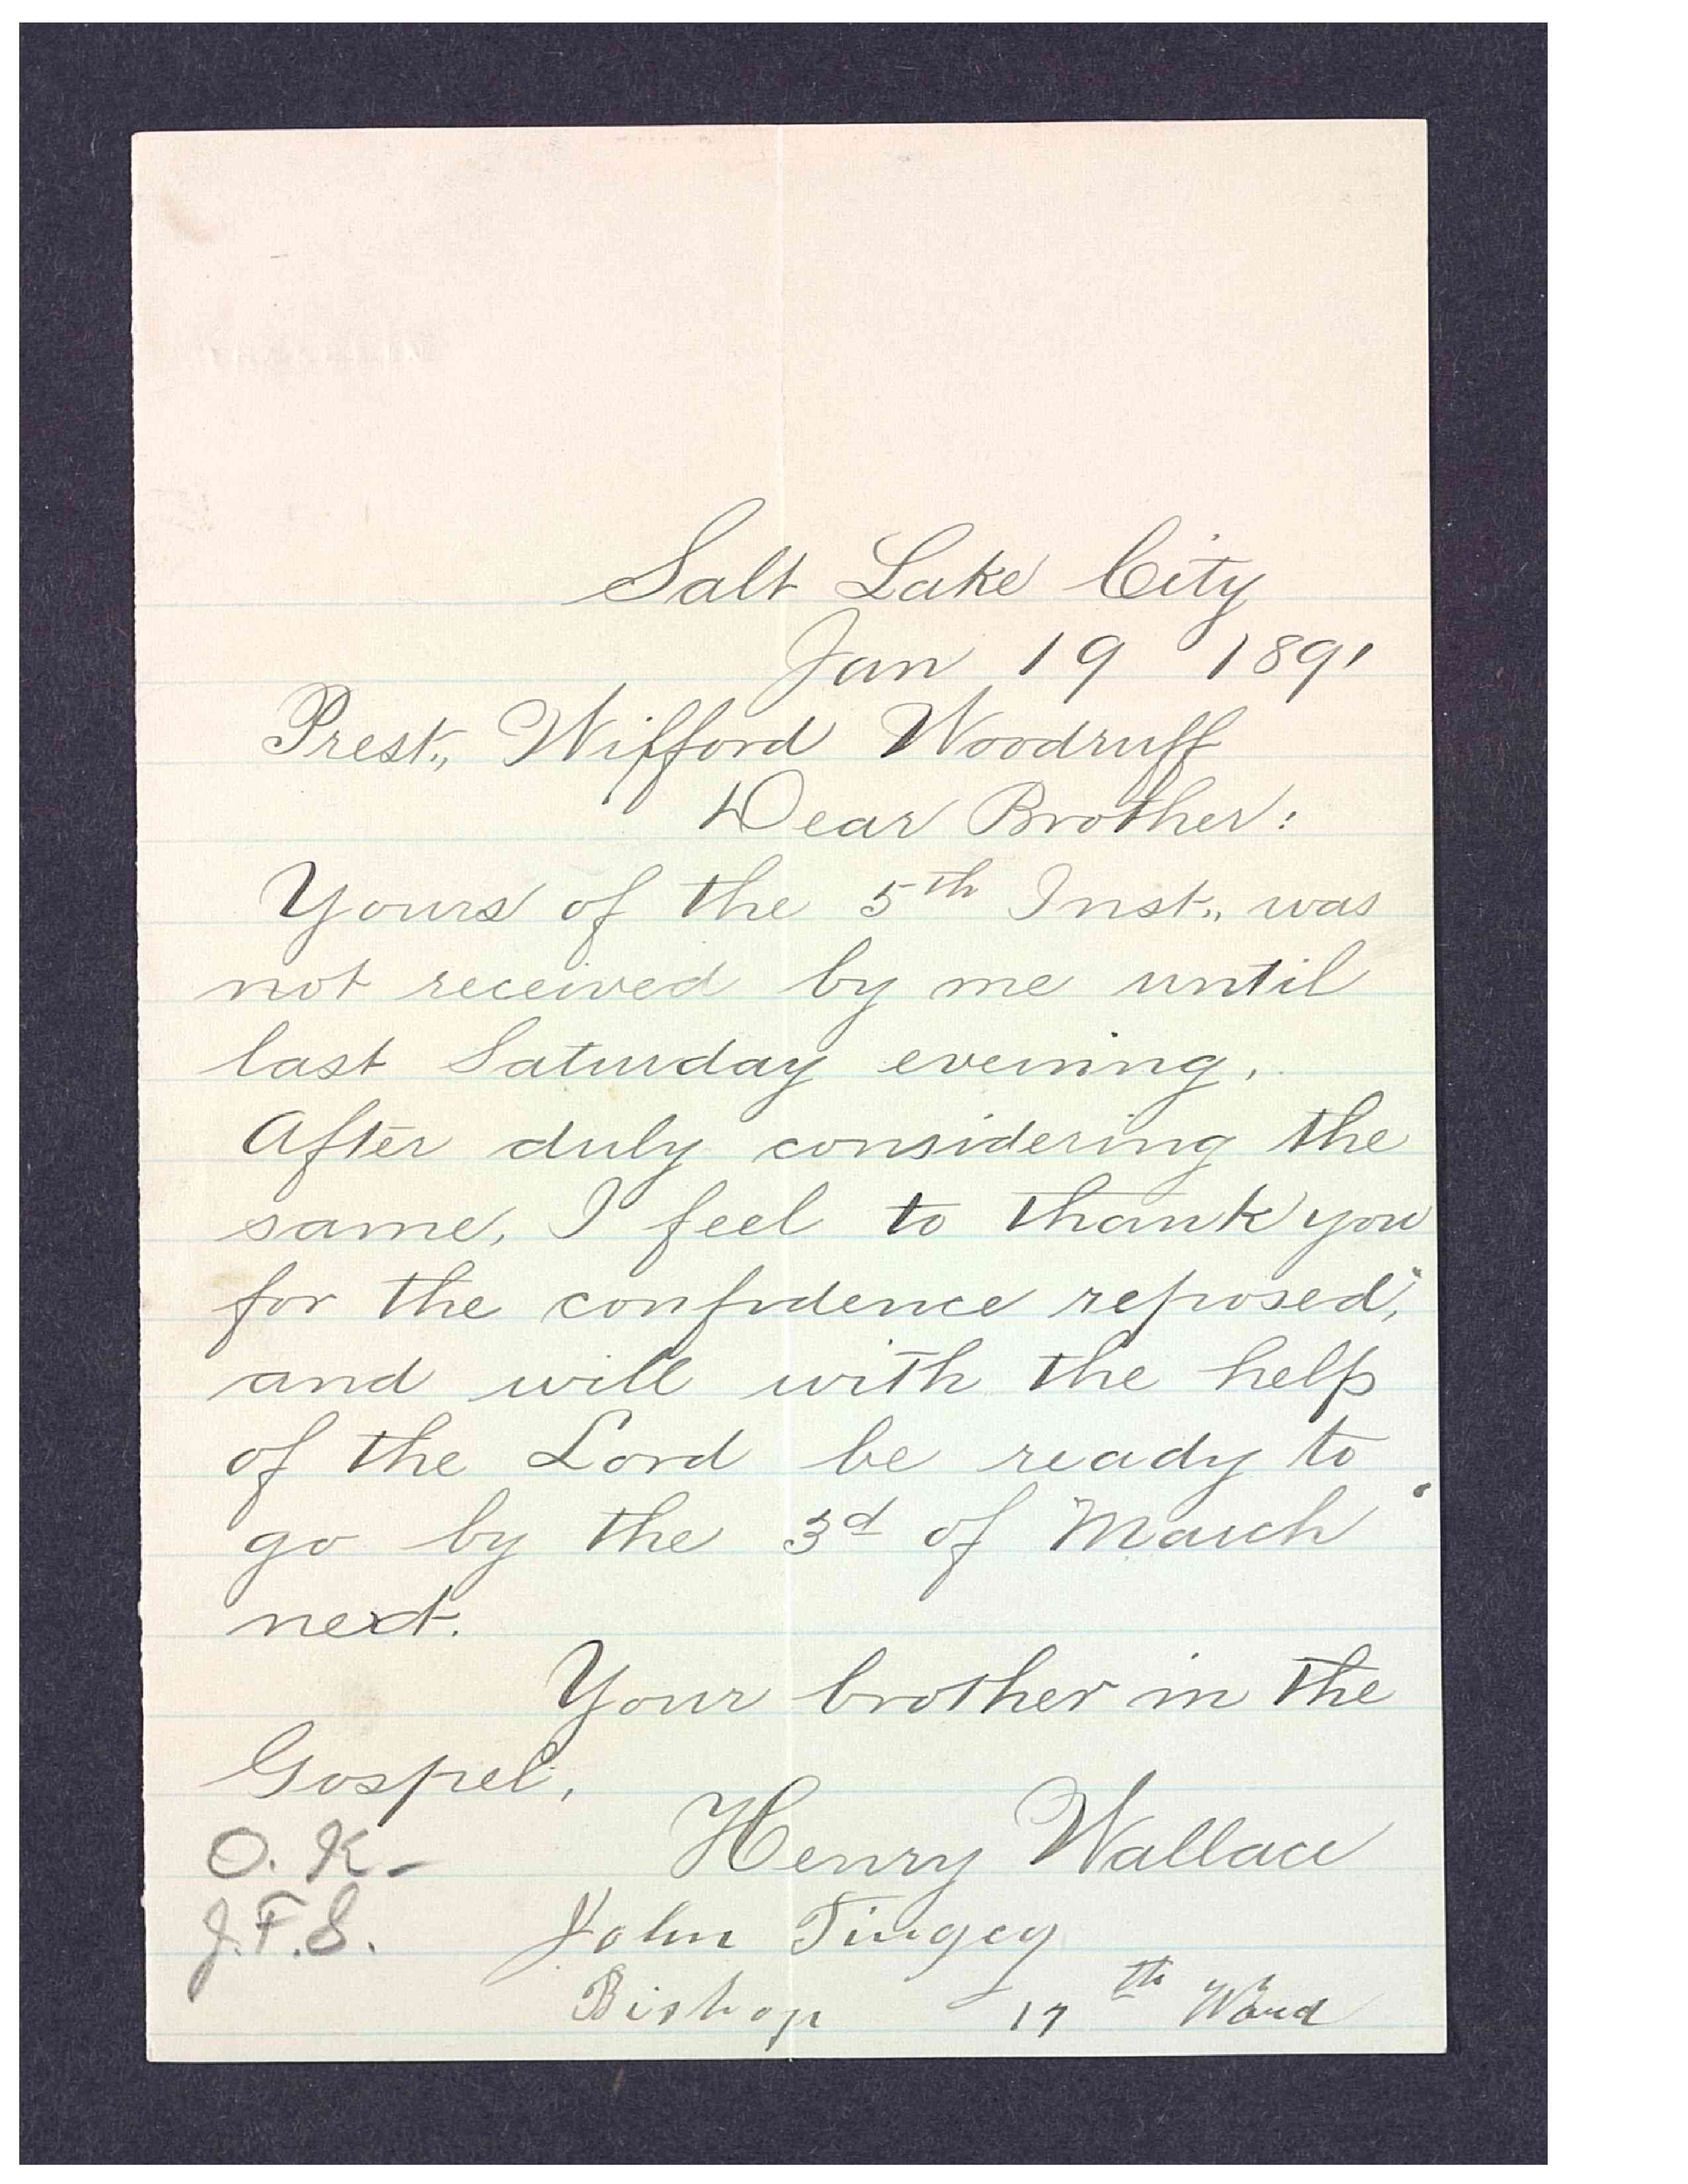 Salt Lake City
Jan 19 1891
Prest., Wifford Woodruff
Dear Brother:
Yours of the 5th Inst., was
not received by me until
last Saturday evening.
After duly considering the
same, I feel to thank you
for the confidence reposed,
and will with the help
of the Lord be ready to
go by the 3d of March
next.
Your brother in the
Gospel,
Henry Wallace
O. K.
J. F. S.
John Tingey
Bishop 17th Ward